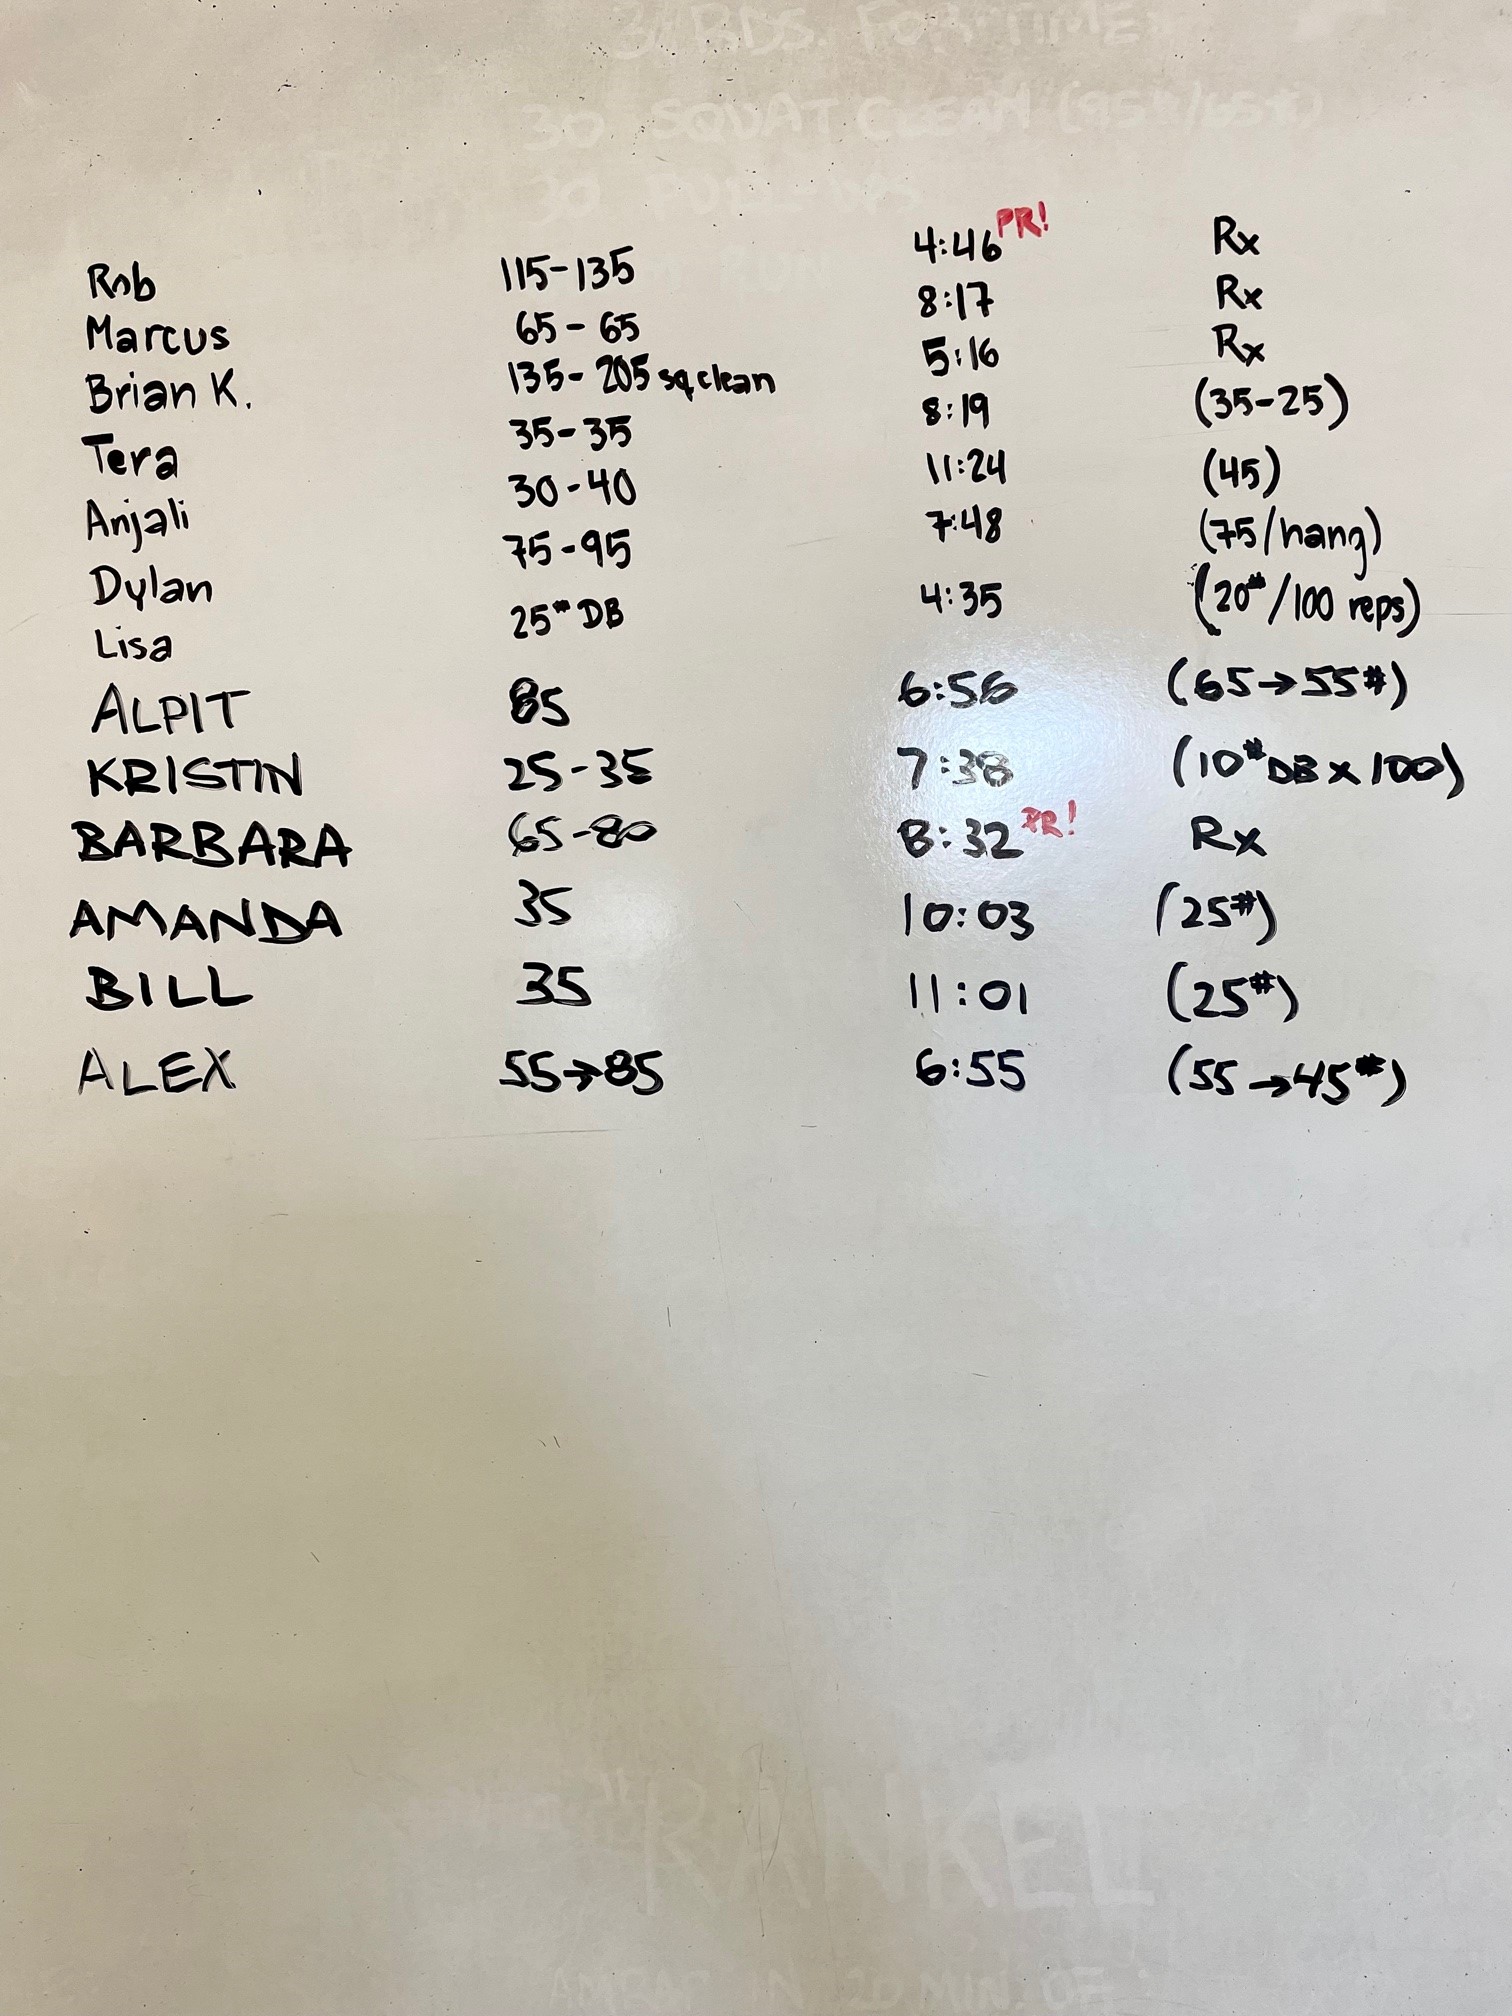 3 RDS. FOR TIME
30 SQUAT CLEAN (95#/65#)
30 PULL-UPS
Rob 115-135 4:46 PR! Rx
Marcus 65-65 8:17 Rx
Brian K. 135-205 sq clean 5:16 Rx
Tera 35-35 8:19 (35-25)
Anjali 30-40 11:24 (45)
Dylan 75-95 7:48 (75/hang)
Lisa 25# DB 4:35 (20#/100 reps)
ALPIT 85 6:56 (65→55#)
KRISTIN 25-35 7:38 (10# DB x 100)
BARBARA 65-80 8:32 PR! Rx
AMANDA 35 10:03 (25#)
BILL 35 11:01 (25#)
ALEX 55→85 6:55 (55→45#)
"RANKEL"
AMRAP IN 20 MIN. OF